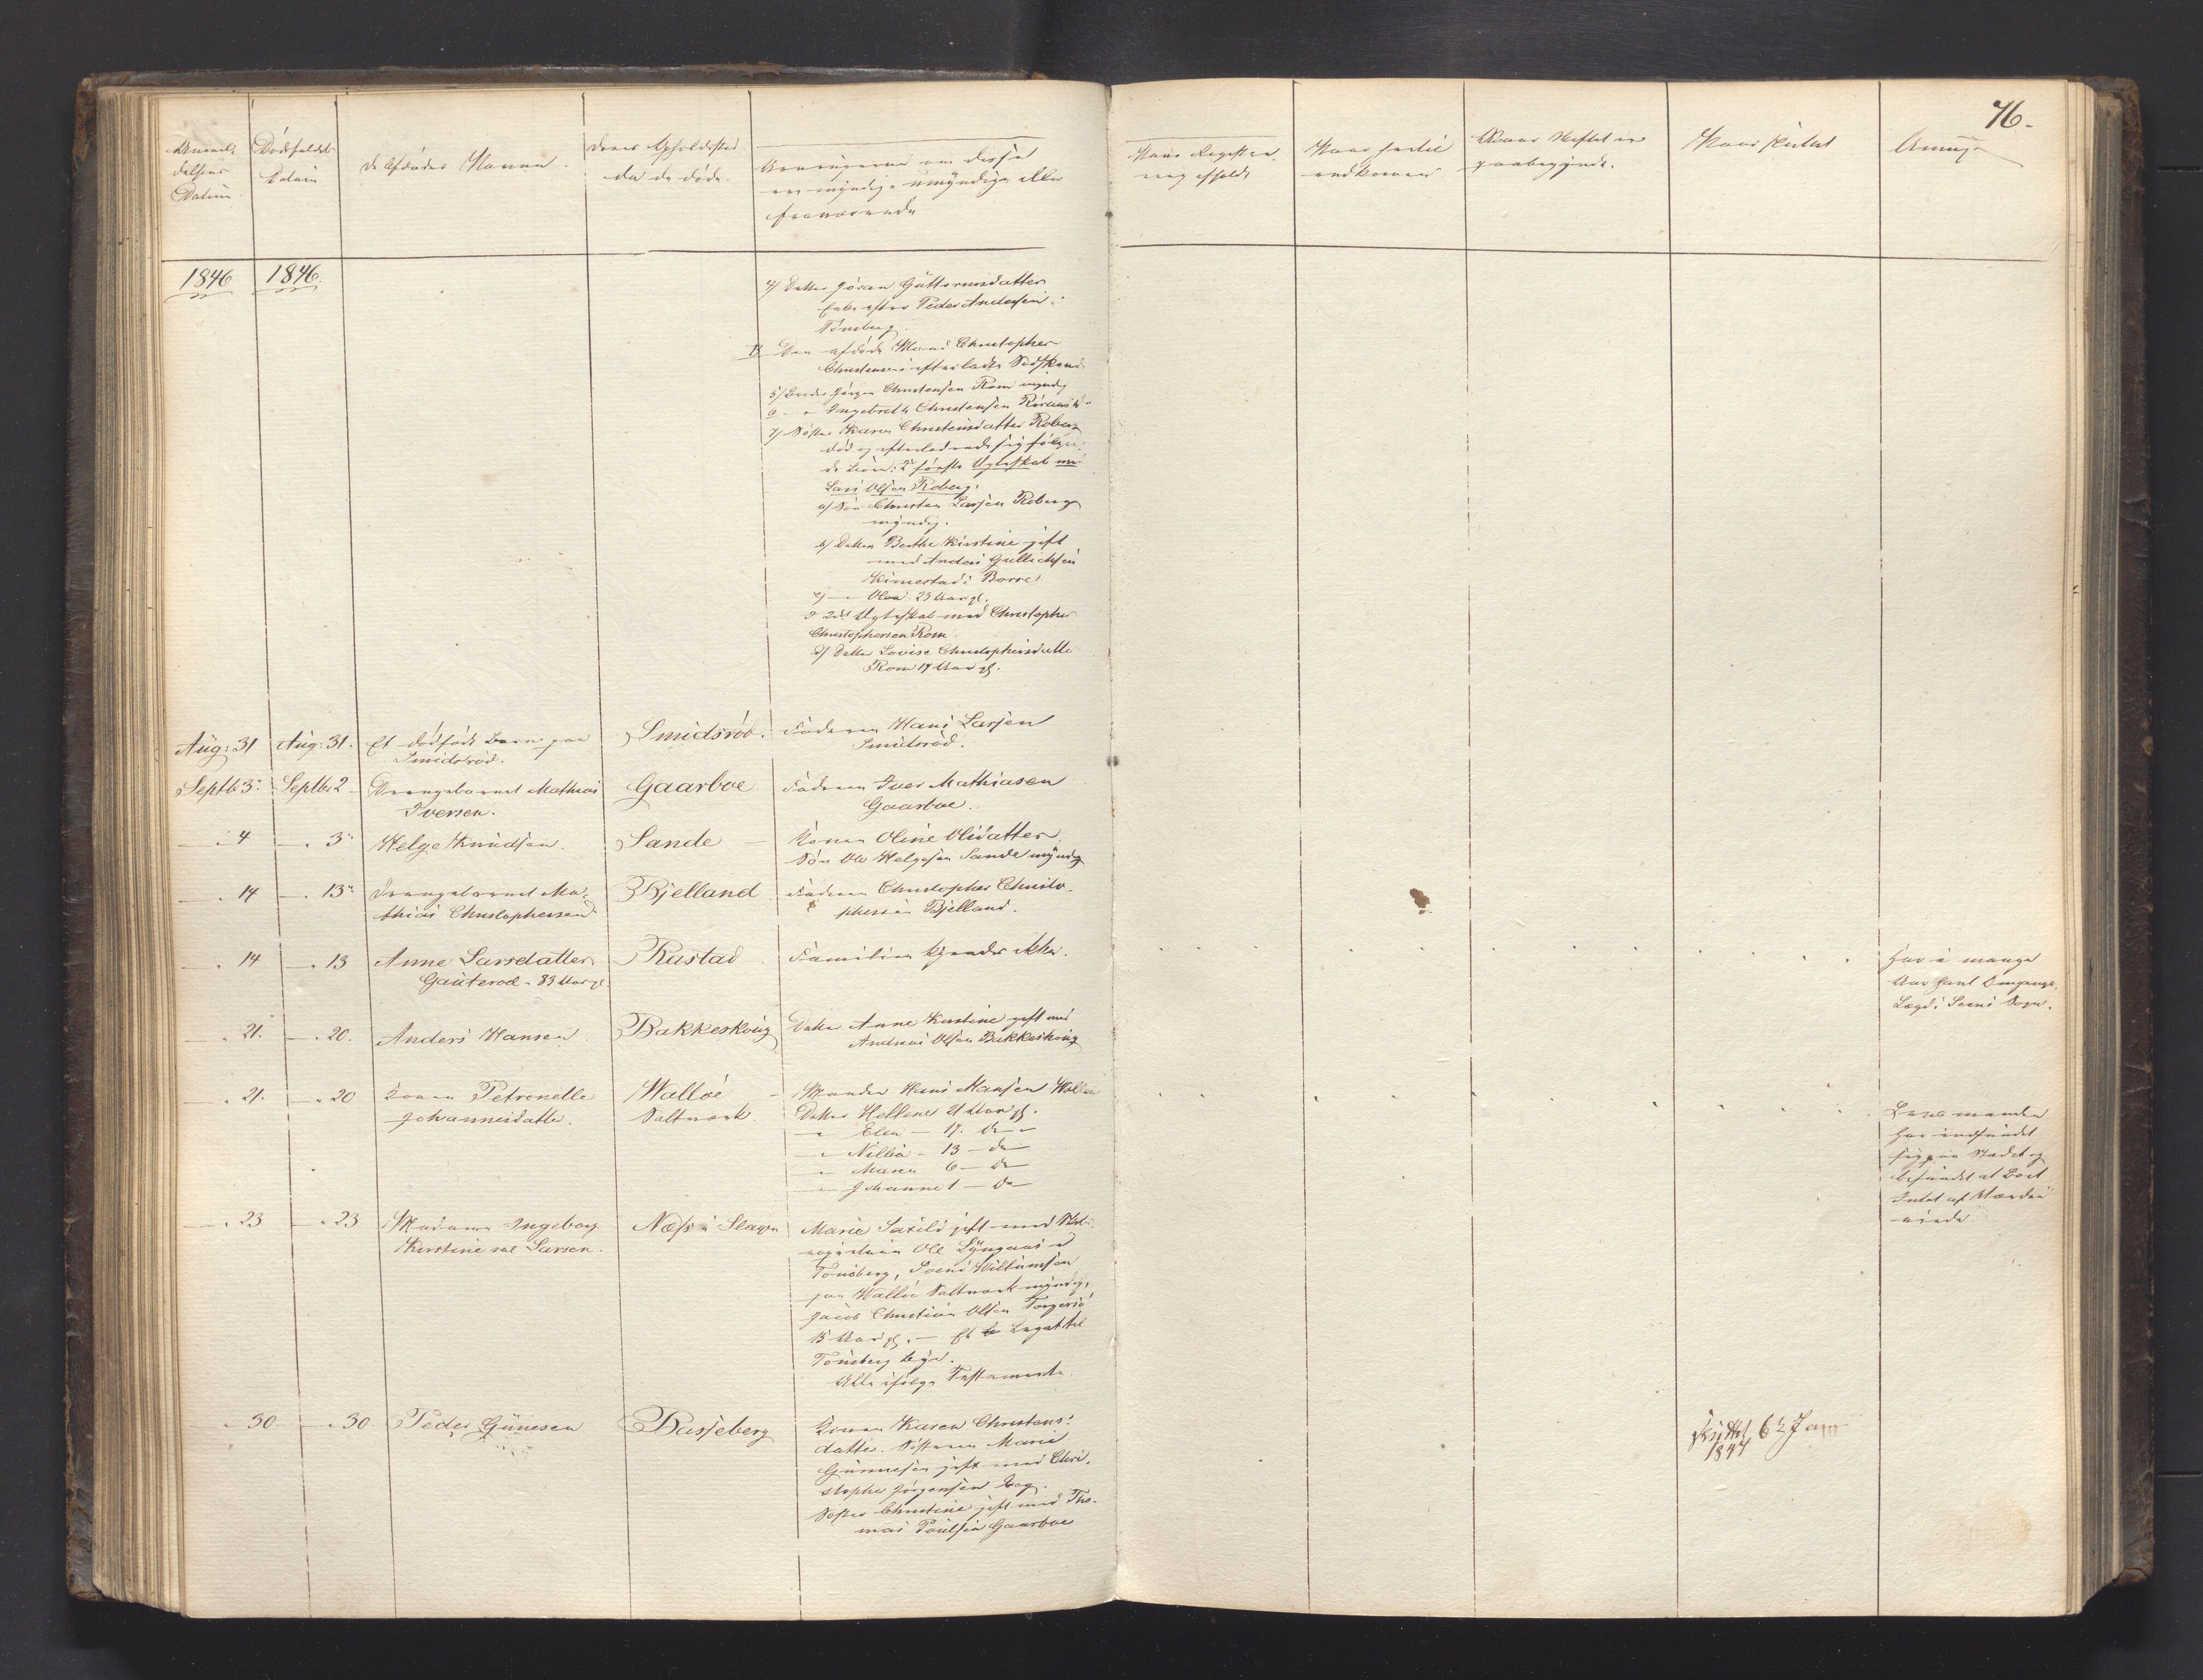 76.
Anmel-
delsens
Datum
Dødsfaldets
Datum
De Afdødes Navne.
Deres Opholdssted
da de døde.
Arvingerne om disse
ere myndige umyndige eller
fraværende
Naar Registre-
ring afholdt
Naar
indkommen
Naar Skiftet er
paabegyndt.
Naar sluttet
Anmærk
1846
1846.
4/ Datter Jøran Guttormsdatter
Enke efter Peder Andersen
Tønsberg.
B Den afdøde Mand Christopher
Christensens efterladte Sødskende
5/ Broder Jørgen Christensen Rom myndig
6 — " Ingebreth Christensen
7/ Søster Karen Christensdatter Roberg
død og efterladende sig følgen-
de Børn: I første Ægteskab med
Lars Olsen Roberg:
a/ Søn Christen Larsen Roberg
myndig.
b/ Datter Berthe Kirstine gift
med Anders Gullichsen
Kimestad i Borre
c/ — " Olea 23 Aar gl.
I 2det Ægteskab med Christopher
Christophersen Rom
d/ Datter Lovise Christophersdatter
Rom 17 Aar gl.
Aug: 31
Aug: 31.
Et dødfødt Barn paa
Smidsrød.
Smidsrød.
Faderen Hans Larsen
Smidsrød.
Septb. 3
Septb. 2
Drengebarnet Mathias
Iversen.
Gaarboe
Faderen Iver Mathiasen
Gaarboe.
" 4
— " 3
Helge Knudsen.
Sande —
Konen Oline Olsdatter
Søn Ole Helgesen Sande myndig
— " 14
— " 13
Drengebarnet Ma-
thias Christophersen
Bjelland
Faderen Christopher Christo-
phersen Bjelland.
— " 14
— " 13
Anne Larsdatter
Gauterød - 83 Aar gl
Rustad
Familien kjendes ikke.
Har i mange
Aar havt Omgangs-
Lægd i Sems Sogn.
— " 21.
— " 20.
Anders Hansen
Bakkeskoug
Datter Anne Kirstine gift med
Andreas Olsen Bakkeskoug
— " 21.
— " 20
Konen Petronelle
Johannesdatter.
Walløe
Saltværk
Manden Hans Hansen Walløe
Datter Hellene 21 Aar gl.
— " Elen — 17. do —
— " — 13 — do
— " Maren 6 — do
— " Johanne 1 — do
Lensmanden
har indfundet
sig paa Stedet og
befundet at Boet
Intet af Værdie
eiede
— " 23
— " 23
Madame Ingeborg
Kirstine sal Larsen.
Næss i Slagen
Marie Saxild gift med
Ole Lyngaas i
Tønsberg, Svend Williamsen
paa Walløe Saltværk myndig,
Jacob Christian Olsen
15 Aar gl. — Et Legat til
Tønsberg Bye.
Alle ifølge Testamente.
— " 30
— " 30
Peder Gunnesen
Basseberg
Konen Karen Christens-
datter. Søsteren Marie
Gunnesen gift med Chri-
stopher Jørgensen
Søster Christine gift med Tho-
mas Poulsen Gaarboe
sluttet 6te Jan
1847